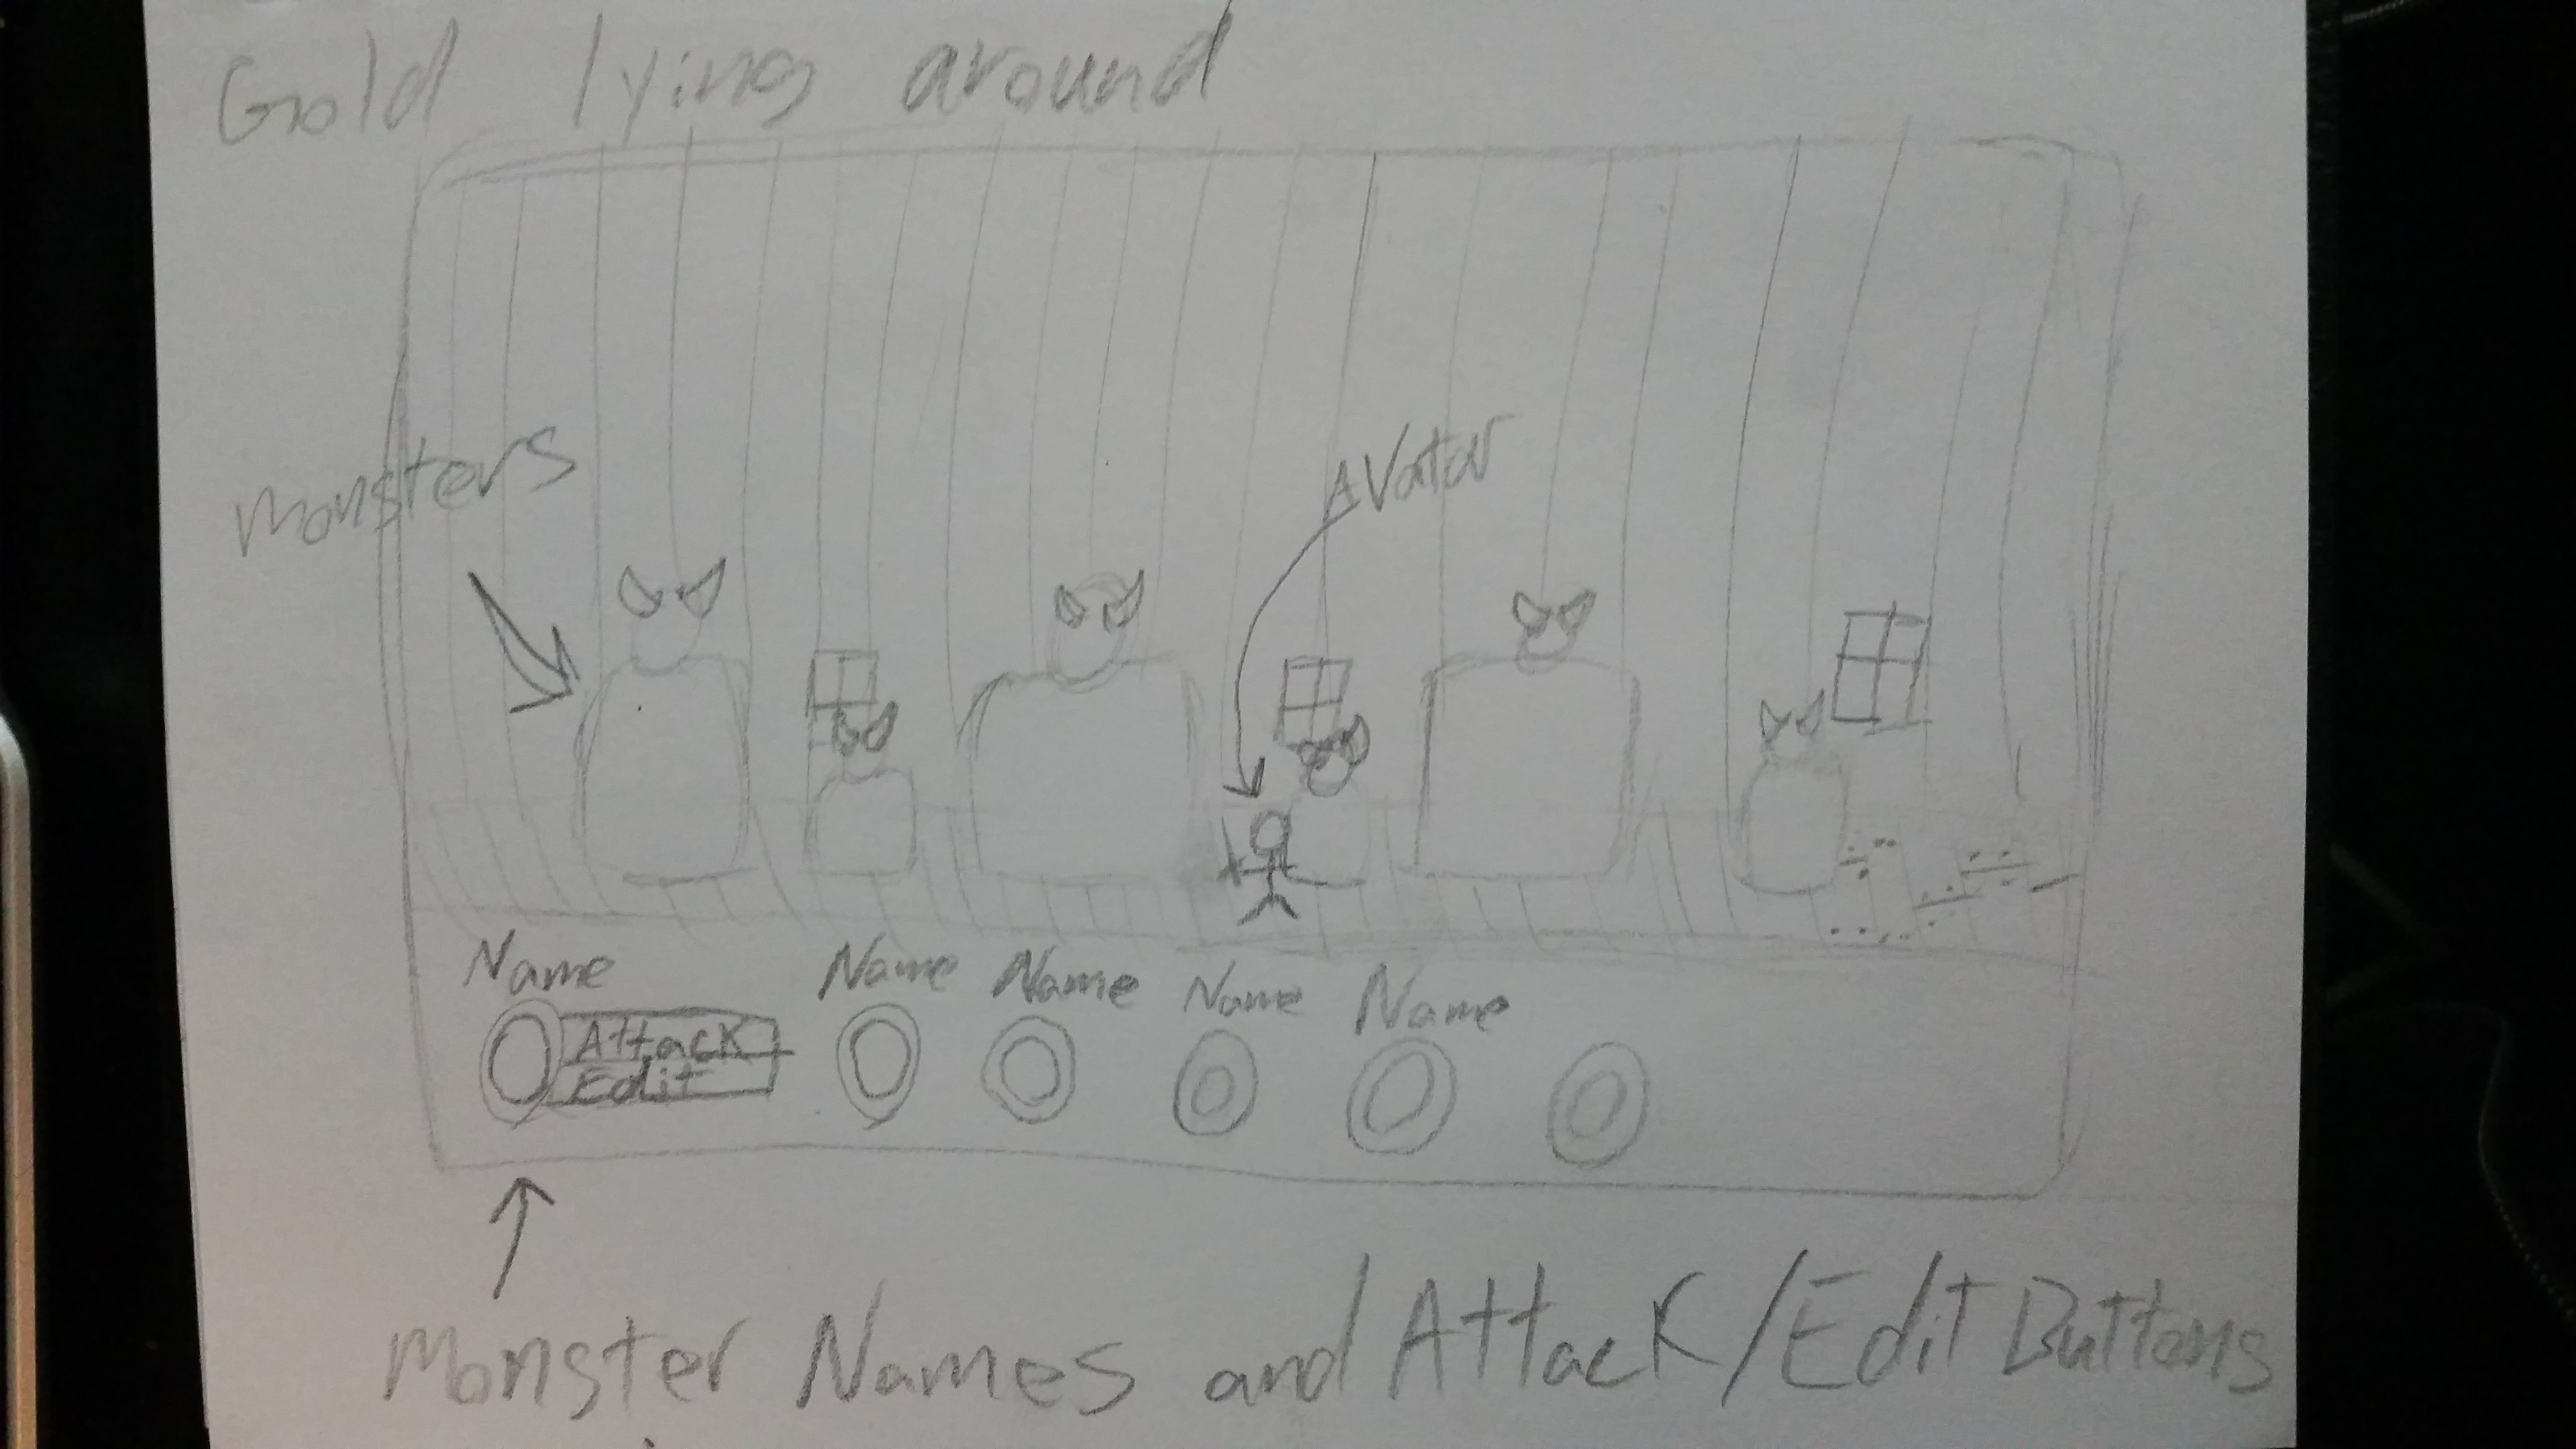 Gold lying around
Monsters
Avatar
Name Name Name Name Name
Attack
Edit
Monster Names and Attack/Edit Buttons